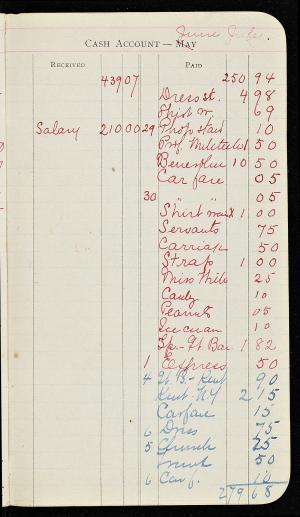 June July
CASH ACCOUNT — MAY
RECEIVED PAID
439 07 250 94
Dress st. 4 98
69
Salary 210 00 29 10
Prof. 1 50
10 50
Car fare 05
30 " " 05
Shirt waist 1 00
Servants 75
Carriage 50
Strap 1 00
Miss 25
Candy 10
Peanuts 05
Ice cream 10
1 82
1 Express 50
4 90
Kent - N.Y. 2 15
Carfare 15
6 Dress 75
5 Church 25
Trunk 50
6 Car f. 10
279 68